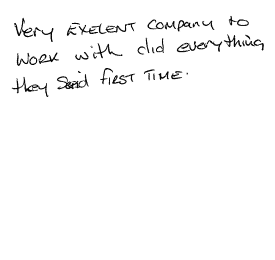 Very EXELENT COMPANY to
WORK with did everything
they Said FIRST TIME.